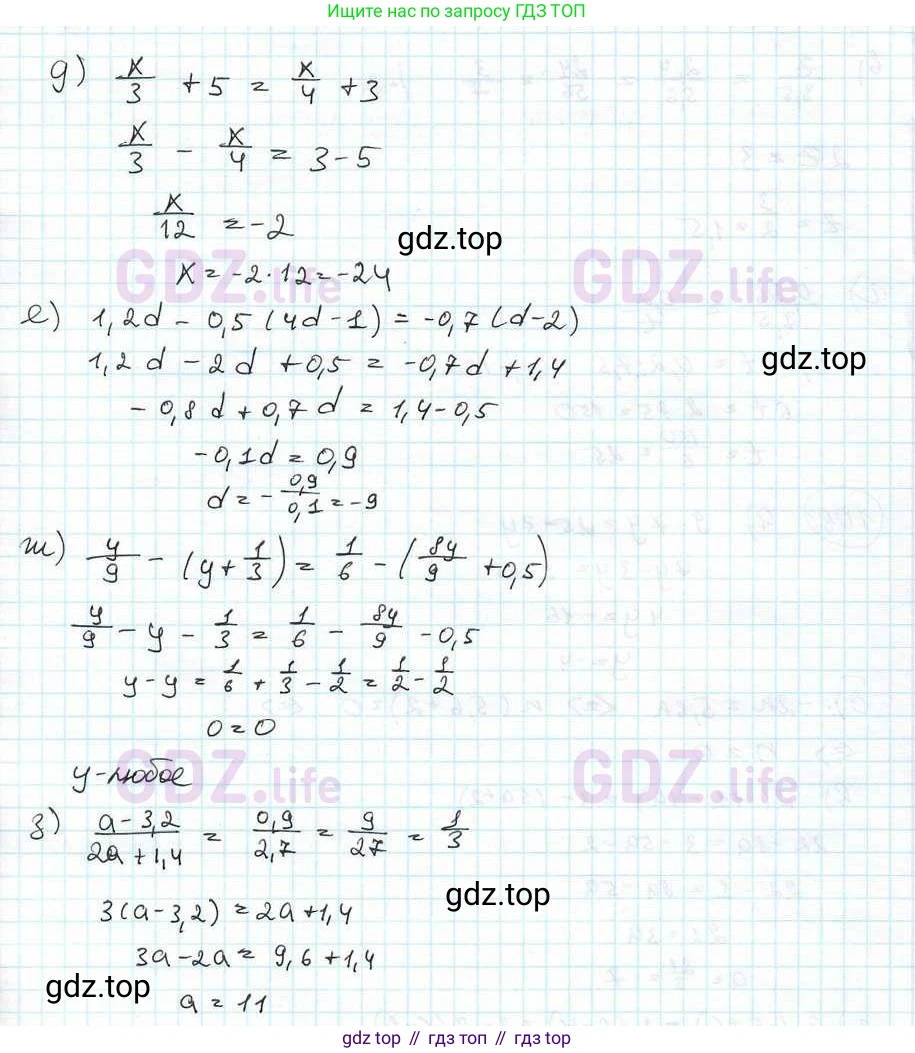 Ищите нас по запросу ГДЗ ТОП
д) x/3 + 5 = x/4 + 3
x/3 - x/4 = 3 - 5
x/12 = -2
gdz.top
x = -2·12 = -24
GDZ.life GDZ.life
е) 1,2d - 0,5(4d - 1) = -0,7(d - 2)
1,2d - 2d + 0,5 = -0,7d + 1,4
gdz.top
-0,8d + 0,7d = 1,4 - 0,5
-0,1d = 0,9
d = -0,9/0,1 = -9
ж) y/9 - (y + 1/3) = 1/6 - (8y/9 + 0,5)
y/9 - y - 1/3 = 1/6 - 8y/9 - 0,5
y - y = 1/6 + 1/3 - 1/2 = 1/2 - 1/2
0 = 0
y - любое
GDZ.life GDZ.life
з) (a - 3,2)/(2a + 1,4) = 0,9/2,7 = 9/27 = 1/3
3(a - 3,2) = 2a + 1,4
gdz.top
3a - 2a = 9,6 + 1,4
gdz.top
a = 11
gdz top // гдз топ // gdz top